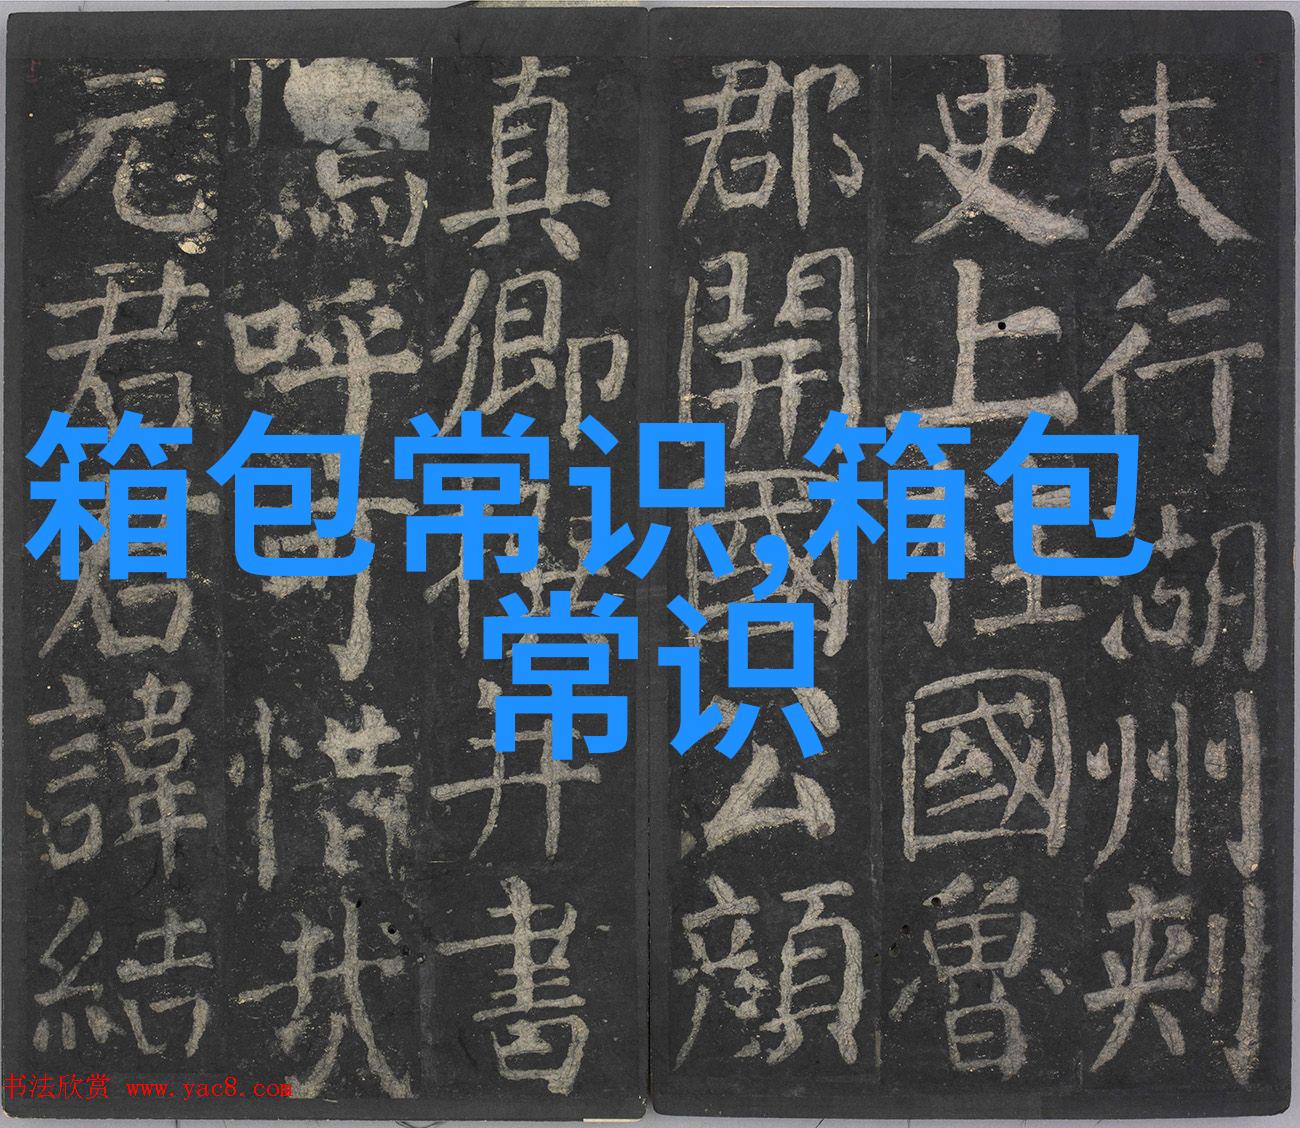 箱包常识,箱包
常识
夫行湖州刺
史上柱國魯
郡開國公顏
真卿撰并書
嗚呼可惜哉
元君君諱結
书法欣赏 www.yac8.com